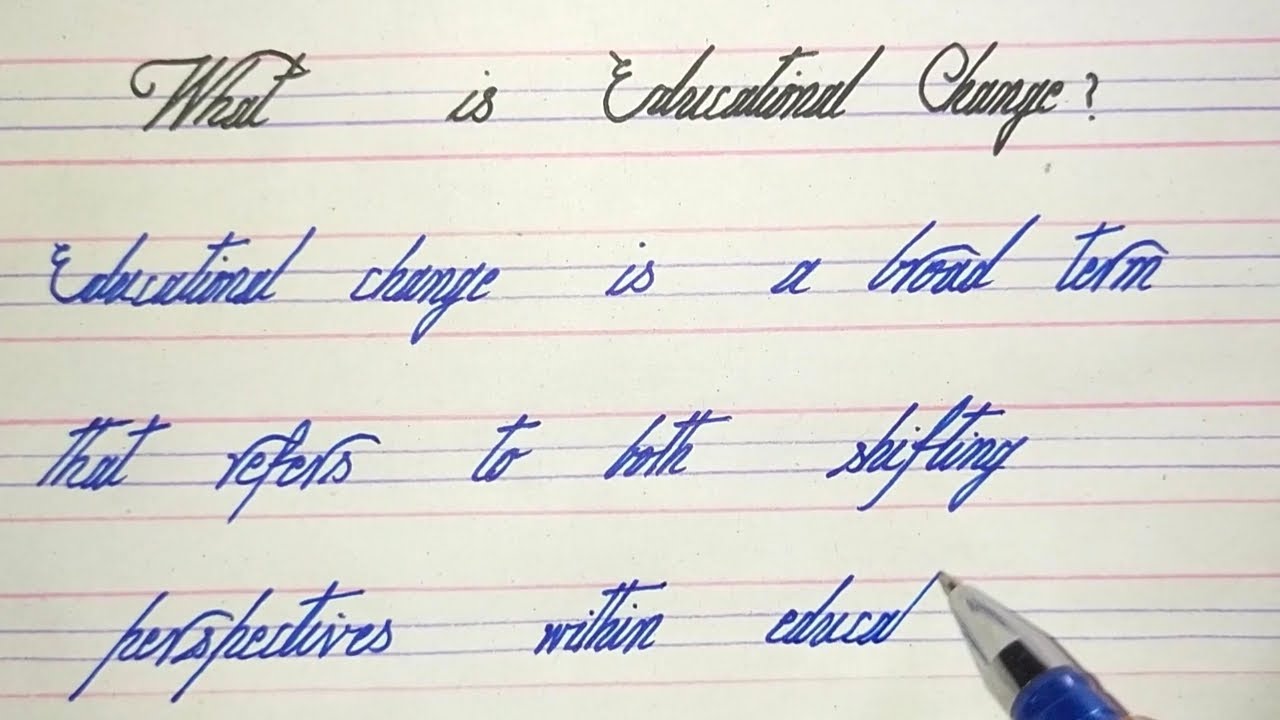 What is Educational Change?
Educational change is a broad term
that refers to both shifting
perspectives within educa